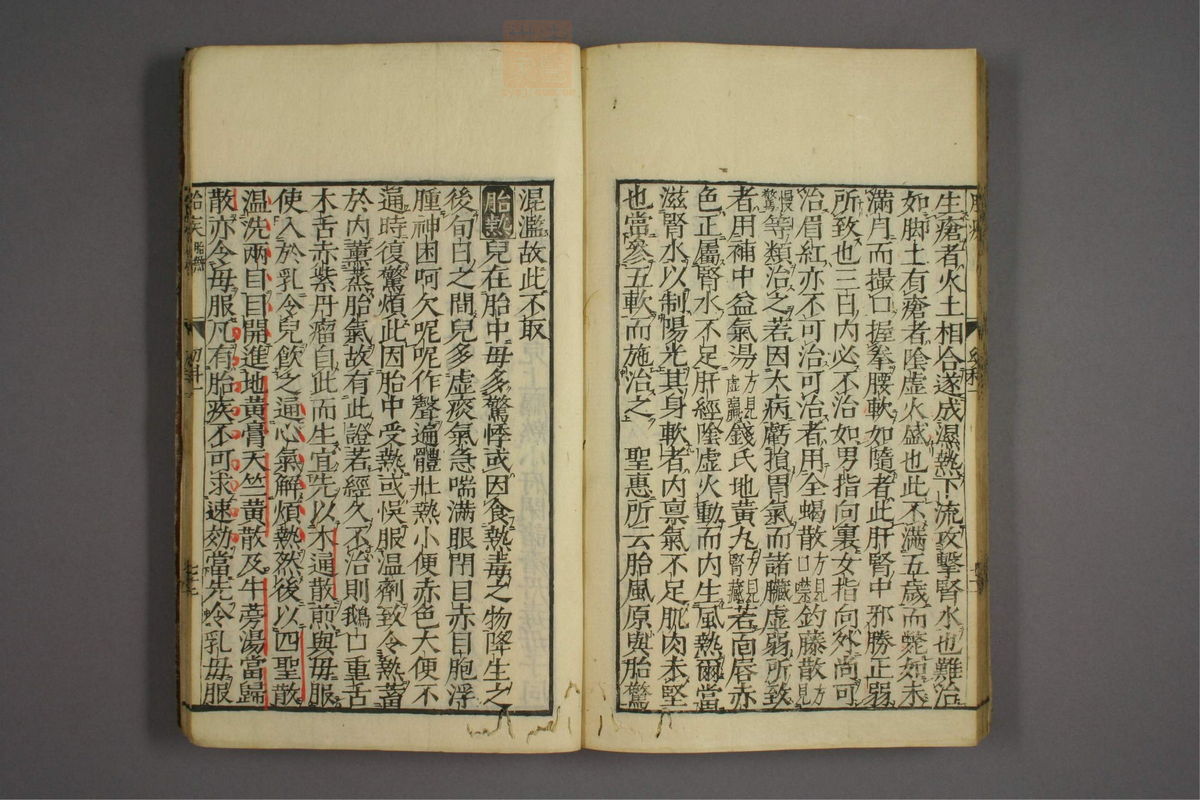 生瘡者火土相合遂成濕熱下流攻擊腎水也難治
如脚土有瘡者陰虛火盛也此不滿五歲而斃如未
滿月而撮口握拳腰軟如隨者此肝腎中邪勝正弱
所致也三日內必不治如男指向裏女指向外尚可
治眉紅亦不可治可治者用全蝎散方見口噤釣藤散方見
慢驚等類治之若因大病虧損胃氣而諸臟虛弱所致
者用補中益氣湯方見虛羸錢氏地黃丸方見腎藏若面唇赤
色正屬腎水不足肝經陰虛火動而內生風熱爾當
滋腎水以制陽光其身軟者內稟氣不足肌肉未堅
也當參五軟而施治之 聖惠所云胎風原與胎驚
混濫故此不取
胎熱兒在胎中母多驚悸或因食熱毒之物降生之
後旬日之間兒多虛痰氣急喘滿眼閉目赤目胞浮
腫神困呵欠呢呢作聲遍體壯熱小便赤色大便不
通時復驚煩此因胎中受熱或悞服溫劑致令熱蓄
於內薰蒸胎氣故有此證若經久不治則鵝口重舌
木舌赤紫丹瘤自此而生宜先以木通散煎與母服
使入於乳令兒飲之通心氣解煩熱然後以四聖散
温洗兩目目開進地黃膏天竺黃散及牛蒡湯當歸
散亦令母服凡有胎疾不可求速効當先令乳母服
胎疾 胎熱 幼科二